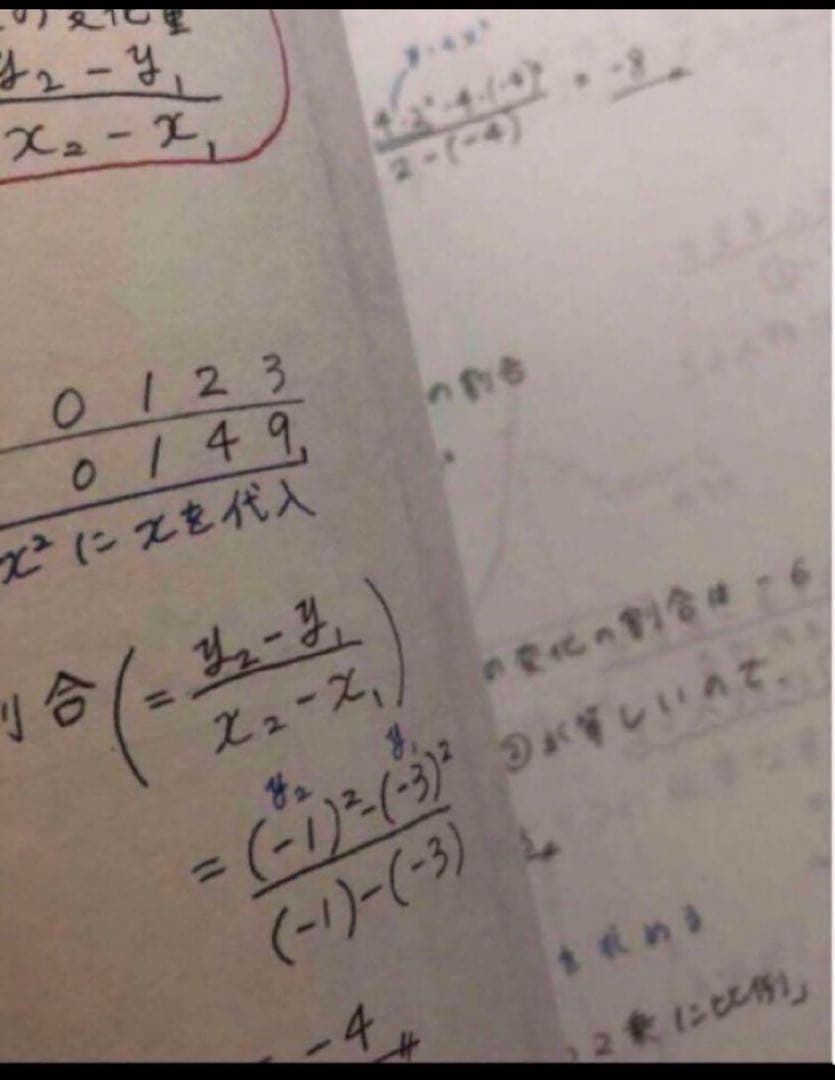 の変化量
y₂ - y₁
x₂ - x₁
0 1 2 3
0 1 4 9
x² に xを代入
割合 (= y₂ - y₁ / x₂ - x₁)
y₂ y₁
= (-1)² - (-3)² / (-1) - (-3)
= -4
4・2² - 4・(-4)² / 2 - (-4) = -8
の割合
の変化の割合は -6
②が等しいので、
を求める
2乗に比例」